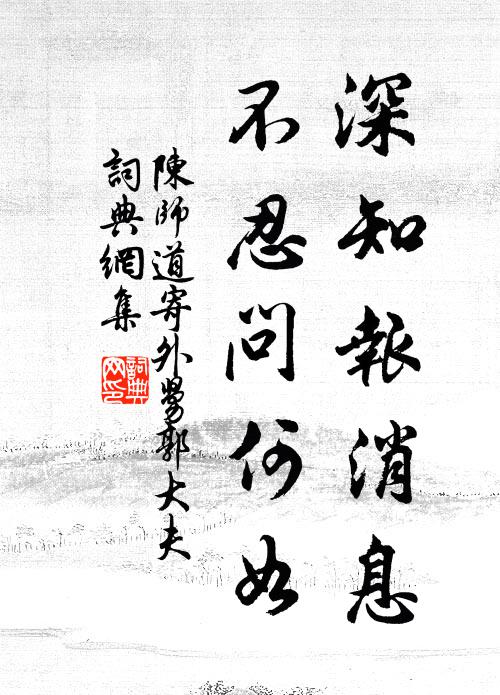 深知報消息
不忍問何如
陳師道寄外舅郭大夫
詞典網集
詞典网印